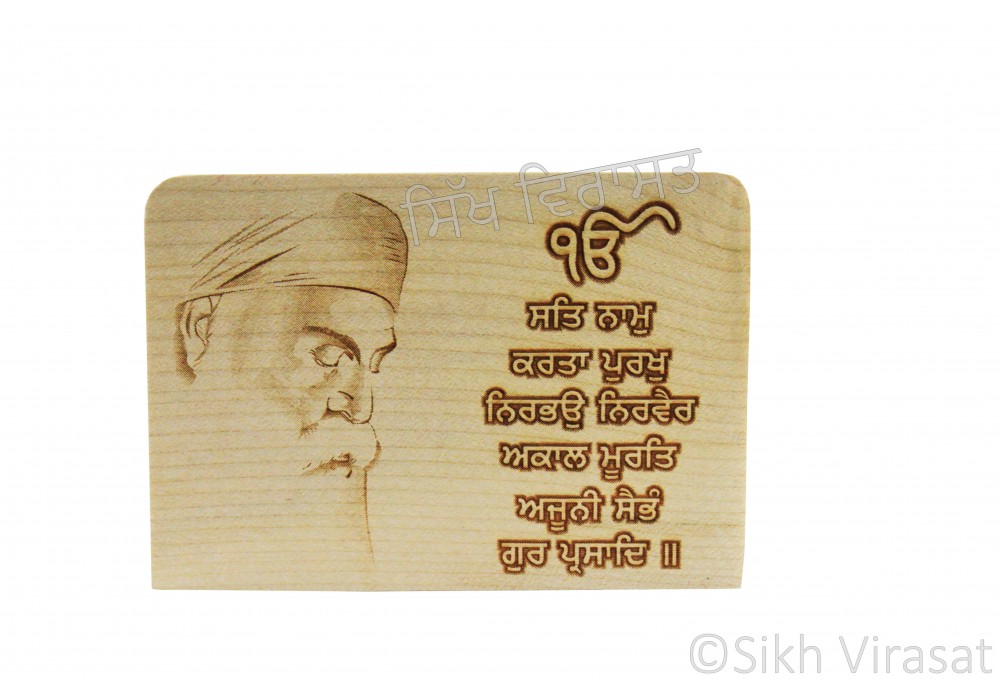 ਸਿੱਖ ਵਿਰਾਸਤ
ੴ
ਸਤਿ ਨਾਮੁ
ਕਰਤਾ ਪੁਰਖੁ
ਨਿਰਭਉ ਨਿਰਵੈਰ
ਅਕਾਲ ਮੂਰਤਿ
ਅਜੂਨੀ ਸੈਭੰ
ਗੁਰ ਪ੍ਰਸਾਦਿ ॥
©Sikh Virasat